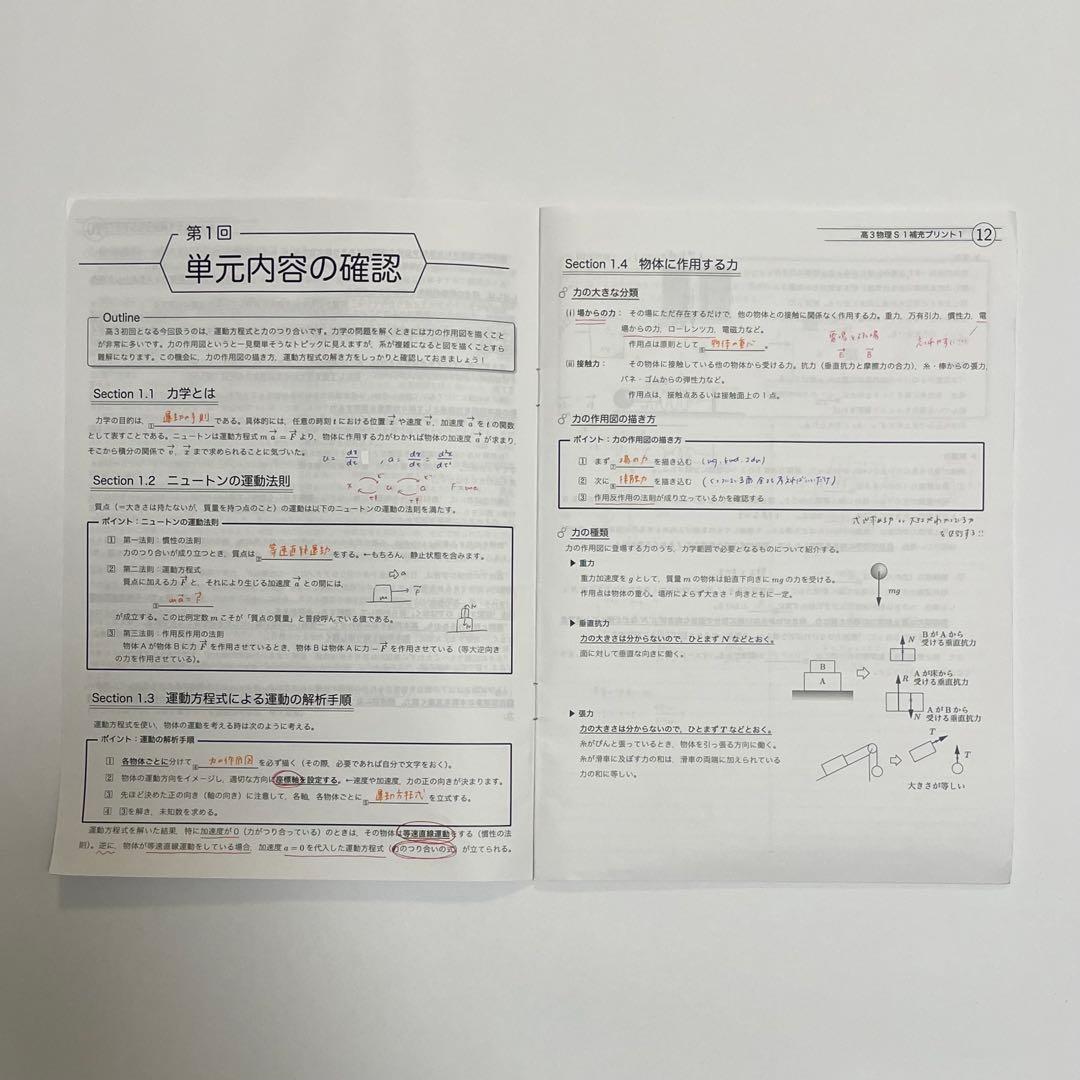 第1回
単元内容の確認
Outline
高3初回となる今回扱うのは、運動方程式と力のつり合いです。力学の問題を解くときには力の作用図を描くこと
が非常に多いです。力の作用図というと一見簡単そうなトピックに見えますが、系が複雑になると図を描くことすら
難解になります。この機会に、力の作用図の描き方、運動方程式の解き方をしっかりと確認しておきましょう！
Section 1.1 力学とは
力学の目的は、①運動の予測 である。具体的には、任意の時刻 t における位置 x→ や速度 v→、加速度 a→ を t の関数
として表すことである。ニュートンは運動方程式 m a→ = F→ より、物体に作用する力がわかれば物体の加速度 a→ が求まり、
そこから積分の関係で v→、x→ まで求められることに気づいた。
v = dx/dt , a = dv/dt = d²x/dt²
x v a F=ma
Section 1.2 ニュートンの運動法則
質点（＝大きさは持たないが、質量を持つ点のこと）の運動は以下のニュートンの運動の法則を満たす。
ポイント：ニュートンの運動法則
① 第一法則：慣性の法則
力のつり合いが成り立つとき、質点は②等速直線運動をする。←もちろん、静止状態を含みます。
② 第二法則：運動方程式
質点に加える力 F→ と、それにより生じる加速度 a→ との間には、
③ ma→ = F→
a
m F→
が成立する。この比例定数 m こそが「質点の質量」と普段呼んでいる値である。
③ 第三法則：作用反作用の法則
物体 A が物体 B に力 F→ を作用させているとき、物体 B は物体 A に力 −F→ を作用させている（等大逆向き
の力を作用させている）。
Section 1.3 運動方程式による運動の解析手順
運動方程式を使い、物体の運動を考える時は次のように考える。
ポイント：運動の解析手順
① 各物体ごとに分けて④力の作用図を必ず描く（その際、必要であれば自分で文字をおく）。
② 物体の運動方向をイメージし、適切な方向に座標軸を設定する。←速度や加速度、力の正の向きが決まります。
③ 先ほど決めた正の向き（軸の向き）に注意して、各軸、各物体ごとに⑤運動方程式を立式する。
④ ③を解き、未知数を求める。
運動方程式を解いた結果、特に加速度が 0（力がつり合っている）のときは、その物体は等速直線運動をする（慣性の法
則）。逆に、物体が等速直線運動をしている場合、加速度 a = 0 を代入した運動方程式（力のつり合いの式）が立てられる。
高3物理S 1補充プリント1 12
Section 1.4 物体に作用する力
力の大きな分類
(i) 場からの力： その場にただ存在するだけで、他の物体との接触に関係なく作用する力。重力、万有引力、慣性力、電
場からの力、ローレンツ力、電磁力など。
作用点は原則として⑥物体の重心。
E→ B→
(ii) 接触力： その物体に接触している他の物体から受ける力。抗力（垂直抗力と摩擦力の合力）、糸・棒からの張力、
バネ・ゴムからの弾性力など。
作用点は、接触点あるいは接触面上の1点。
力の作用図の描き方
ポイント：力の作用図の描き方
① まず⑦場の力を描き込む
② 次に⑧接触力を描き込む
③ 作用反作用の法則が成り立っているかを確認する
力の種類
力の作用図に登場する力のうち、力学範囲で必要となるものについて紹介する。
▶ 重力
重力加速度を g として、質量 m の物体は鉛直下向きに mg の力を受ける。
作用点は物体の重心。場所によらず大きさ・向きともに一定。
mg
▶ 垂直抗力
力の大きさは分からないので、ひとまず N などとおく。
面に対して垂直な向きに働く。
B
A
N
B が A から
受ける垂直抗力
R
A が床から
受ける垂直抗力
N
A が B から
受ける垂直抗力
▶ 張力
力の大きさは分からないので、ひとまず T などとおく。
糸がぴんと張っているとき、物体を引っ張る方向に働く。
糸が滑車に及ぼす力の和は、滑車の両端に加えられている
力の和に等しい。
T
T
大きさが等しい